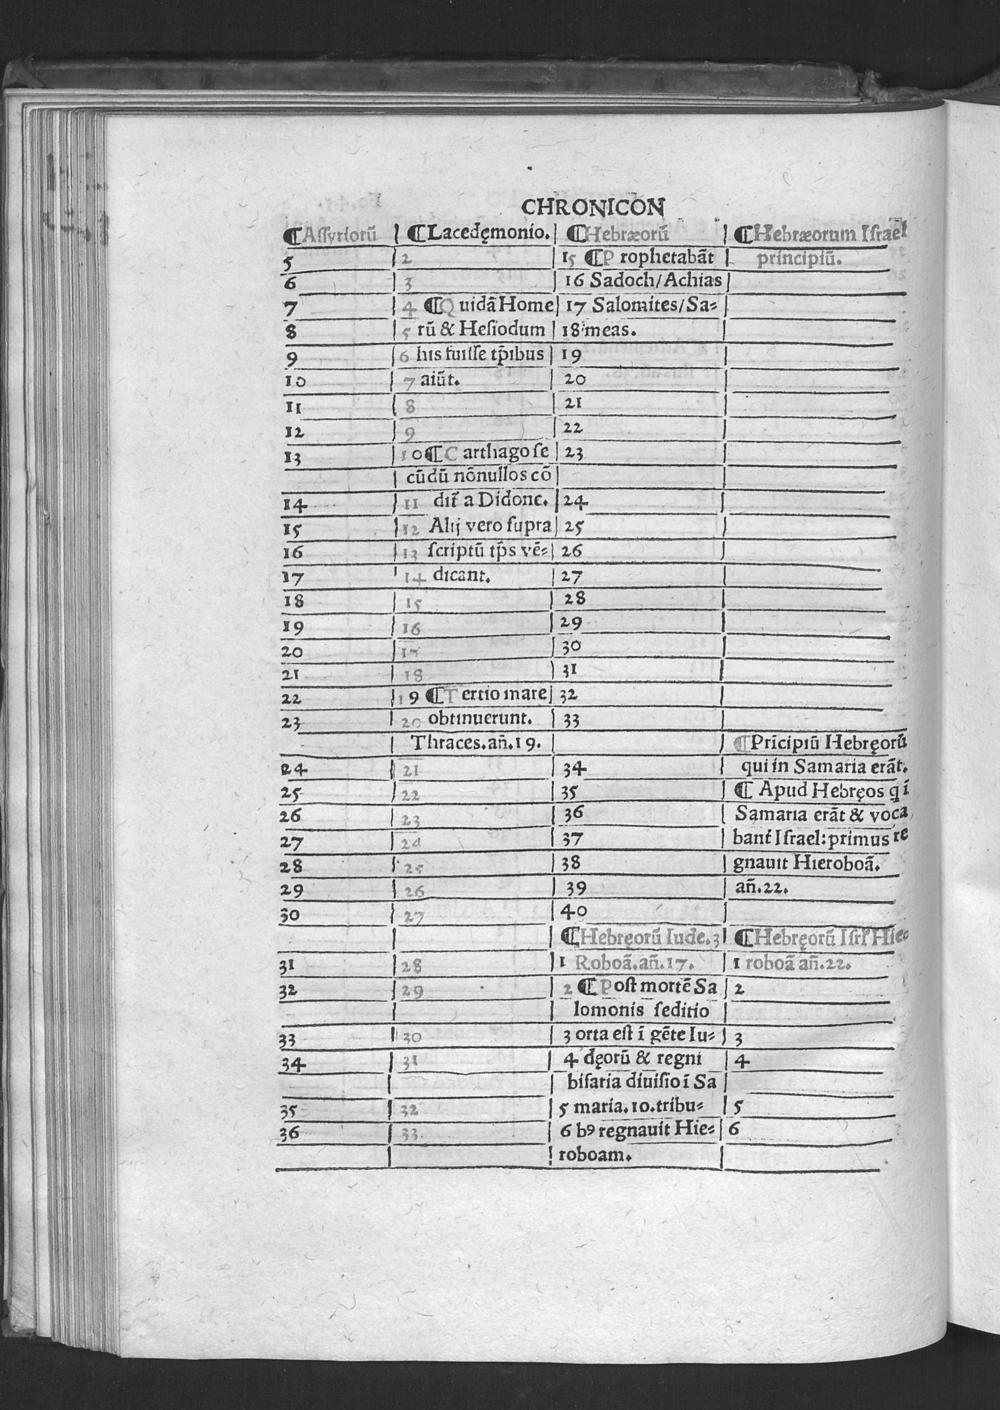 CHRONICON
¶Assyrioru᷑ | ¶Lacedęmonio. | ¶Hebræorũ | ¶Hebræorum Israel
5 | 2 | 15 ¶Prophetabãt | principiũ.
6 | 3 | 16 Sadoch/Achias |
7 | 4 ¶Quidã Home | 17 Salomites/Sa= |
8 | 5 rũ & Hesiodum | 18 meas. |
9 | 6 his fuisse tp̃ibus | 19 |
10 | 7 aiũt. | 20 |
11 | 8 | 21 |
12 | 9 | 22 |
13 | 10 ¶Carthago se | 23 |
| cũdũ nõnullos cõ | |
14 | 11 dit̃ a Didone. | 24 |
15 | 12 Alij vero supra | 25 |
16 | 13 scriptũ tp̃s vẽ= | 26 |
17 | 14 dicant. | 27 |
18 | 15 | 28 |
19 | 16 | 29 |
20 | 17 | 30 |
21 | 18 | 31 |
22 | 19 ¶Tertio mare | 32 |
23 | 20 obtinuerunt. | 33 |
| Thraces.añ.19. | | ¶Prĩcipiũ Hebręorũ
24 | 21 | 34 | qui in Samaria erãt.
25 | 22 | 35 | ¶ Apud Hebręos q ĩ
26 | 23 | 36 | Samaria erãt & voca
27 | 24 | 37 | bant̃ Israel: primus re
28 | 25 | 38 | gnauit Hieroboã.
29 | 26 | 39 | añ.22.
30 | 27 | 40 |
| | ¶Hebręorũ Iude.3 | ¶Hebręorũ Isrl̃ Hie
31 | 28 | 1 Roboã.añ.17. | 1 roboã añ.22.
32 | 29 | 2 ¶Post mortẽ Sa | 2
| | lomonis seditio |
33 | 30 | 3 orta est ĩ gẽte Iu= | 3
34 | 31 | 4 dęorũ & regni | 4
| | bifaria diuisio ĩ Sa |
35 | 32 | 5 maria.10.tribu= | 5
36 | 33 | 6 bꝰ regnauit Hie= | 6
| | roboam. |